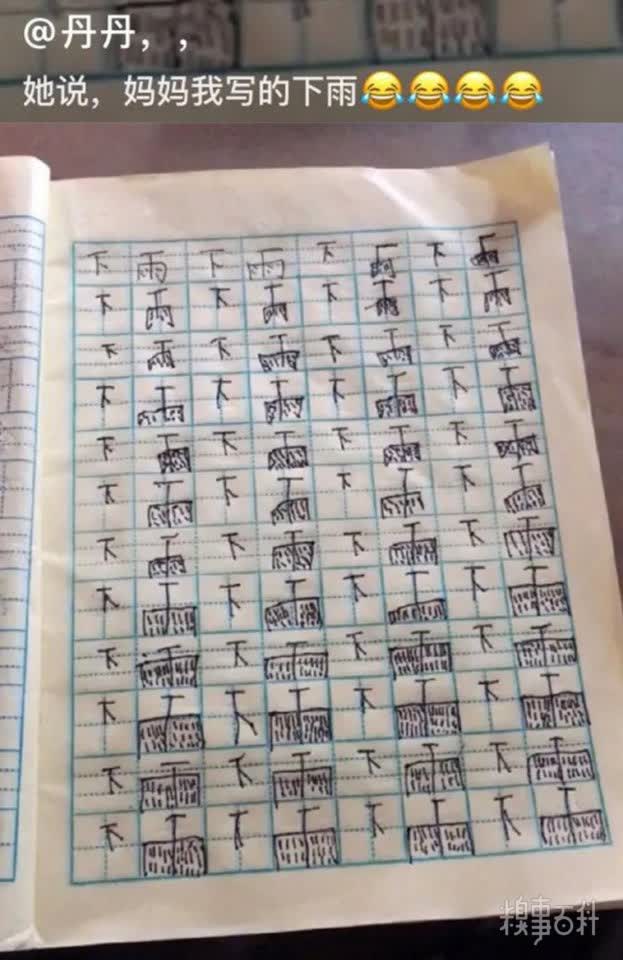 @丹丹，，
她说，妈妈我写的下雨😂😂😂😂
下雨下雨下雨下雨
下雨下雨下雨下雨
下雨下雨下雨下雨
下雨下雨下雨下雨
下雨下雨下雨下雨
下雨下雨下雨下雨
下雨下雨下雨下雨
下雨下雨下雨下雨
下雨下雨下雨下雨
下雨下雨下雨下雨
下雨下雨下雨下雨
下雨下雨下雨下雨
糗事百科